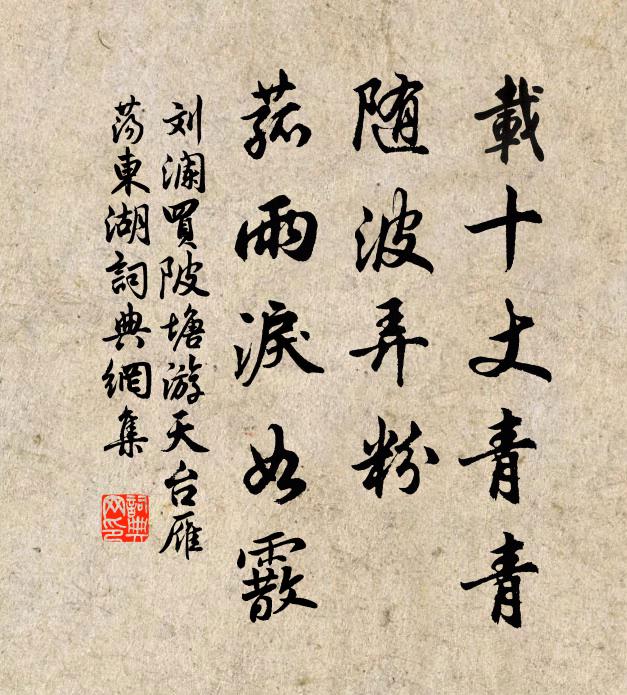 載十丈青青
随波弄粉
菰雨淚如霰
刘瀾買陂塘游天台雁
蕩東湖詞典網集
詞典
网印